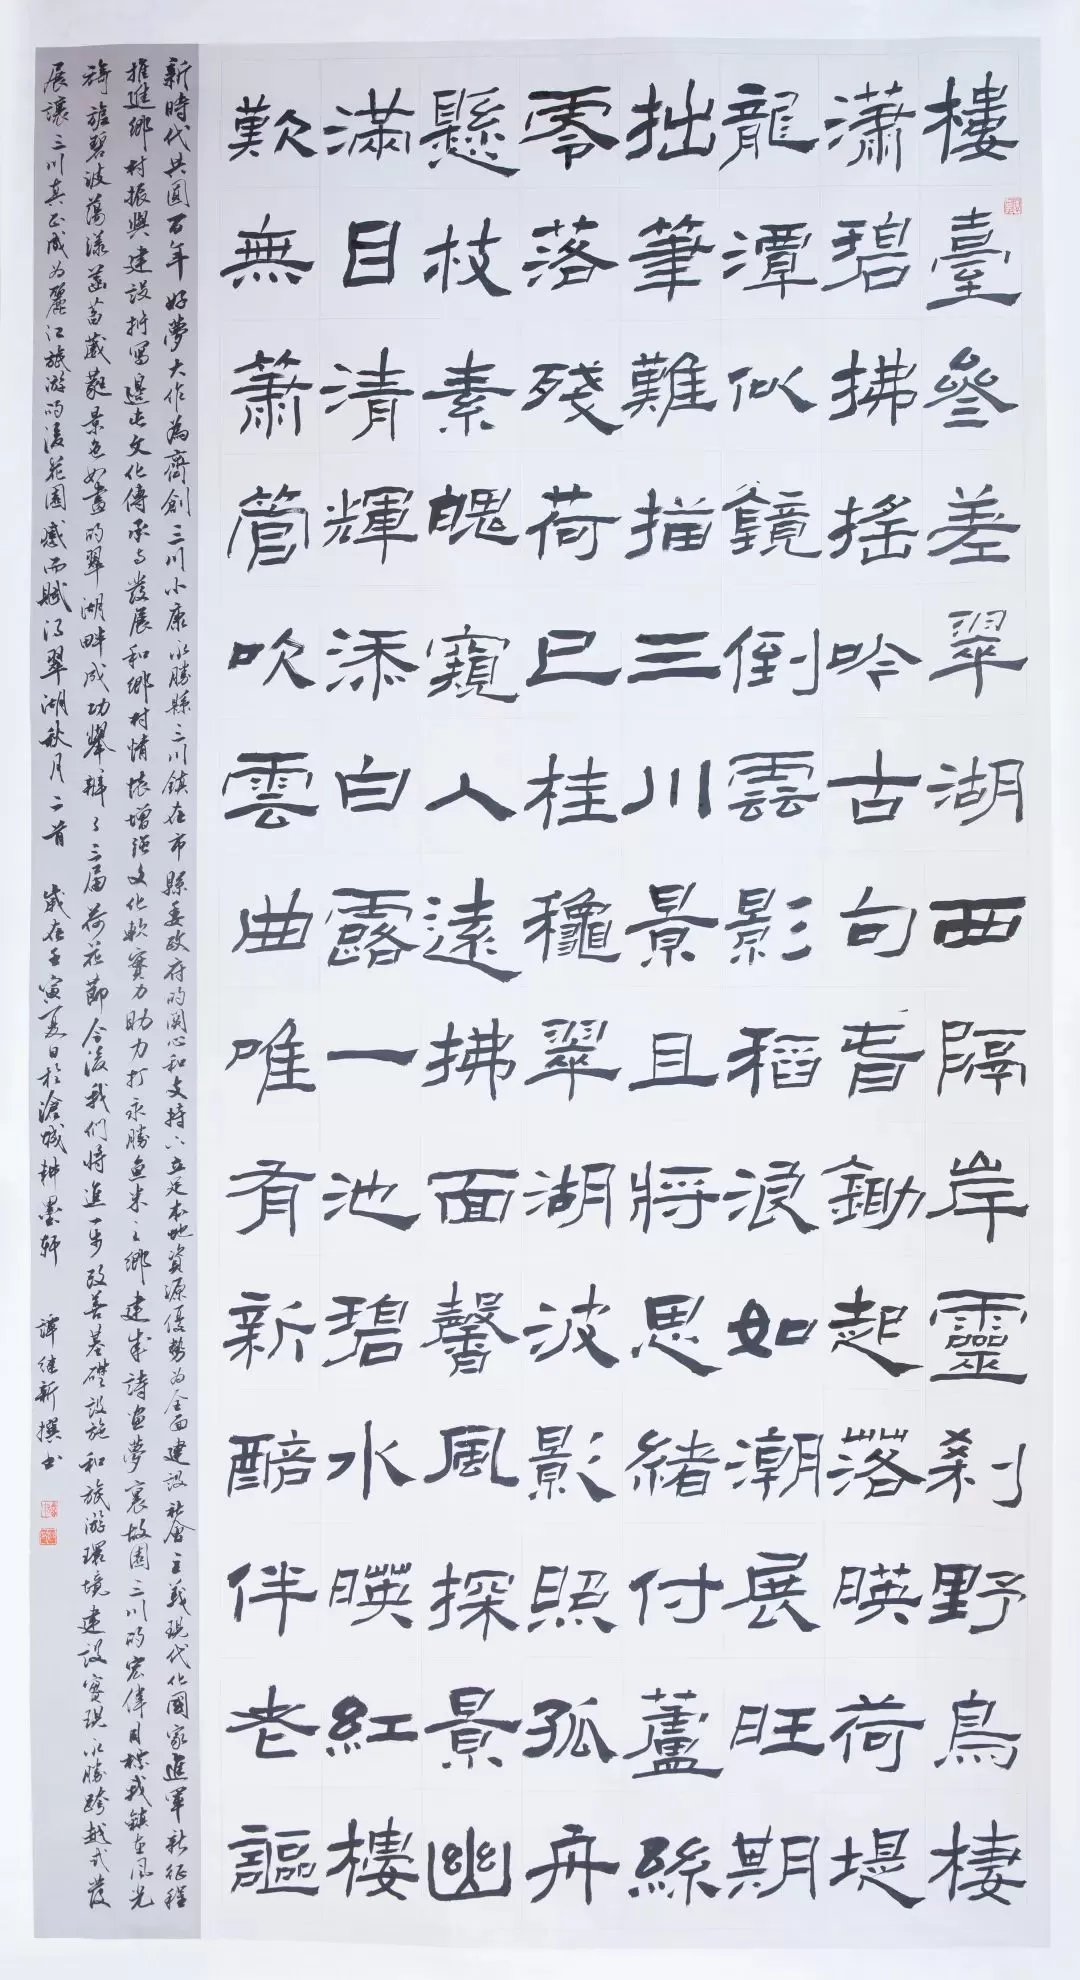 樓臺參差翠湖西隔岸靈剎野鳥棲
瀟碧拂搖吟古句春鋤起落暎荷堤
龍潭似鏡倒雲影稻浪如潮展旺期
拙筆難描三川景且將思緒付蘆絲
零落殘荷已桂穐翠湖波影照孤舟
懸枝素魄窺人遠拂面馨風探景幽
滿目清輝添白露一池碧水暎紅樓
歎無簫管吹雲曲唯有新醅伴老謳
新時代共圓百年好夢大作為齊創三川小康永勝縣三川鎮在市縣委政府的関心和支持下立足本地資源優勢為全面建設社會主義現代化國家進軍新征程
推進鄉村振興建設抒寫邊屯文化傳承与發展和鄉村情懷增强文化軟實力助力打永勝魚米之鄉建成詩画夢裏故園三川的宏偉目標我鎮在風光
旖旎碧波蕩漾菡萏葳蕤景色如畫的翠湖畔成功舉辦了三届荷花節今後我們將進一步改善基礎設施和旅游環境建設實現永勝跨越式發
展讓三川真正成为麗江旅游的後花園感而賦得翠湖秋月二首 歲在壬寅夏日於滄城耕墨軒 譚继新撰书